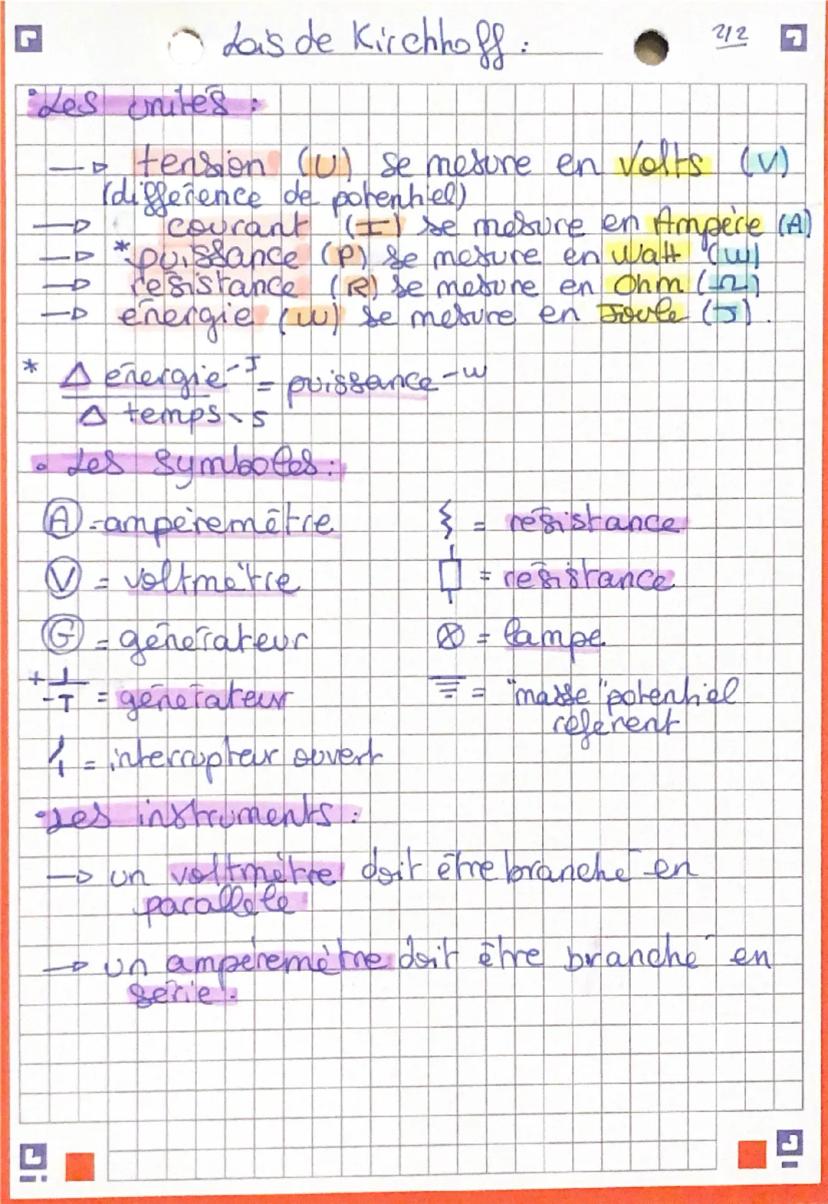 Lois de Kirchhoff :
2/2
• Les unités :
→ tension (U) se mesure en Volts (V)
(différence de potentiel)
→ courant (I) se mesure en Ampère (A)
→ *puissance (P) se mesure en Watt (W)
→ résistance (R) se mesure en Ohm (Ω)
→ énergie (W) se mesure en Joule (J).
* Δ énergie - J = puissance - W
Δ temps - s
• Les symboles :
(A) = ampèremètre
{ = résistance
(V) = voltmètre
= résistance
(G) = générateur
⊗ = lampe
+ - = générateur
= "masse" potentiel
référent
= interrupteur ouvert
• Les instruments :
→ un voltmètre doit être branché en
parallèle
→ un ampèremètre doit être branché en
série.